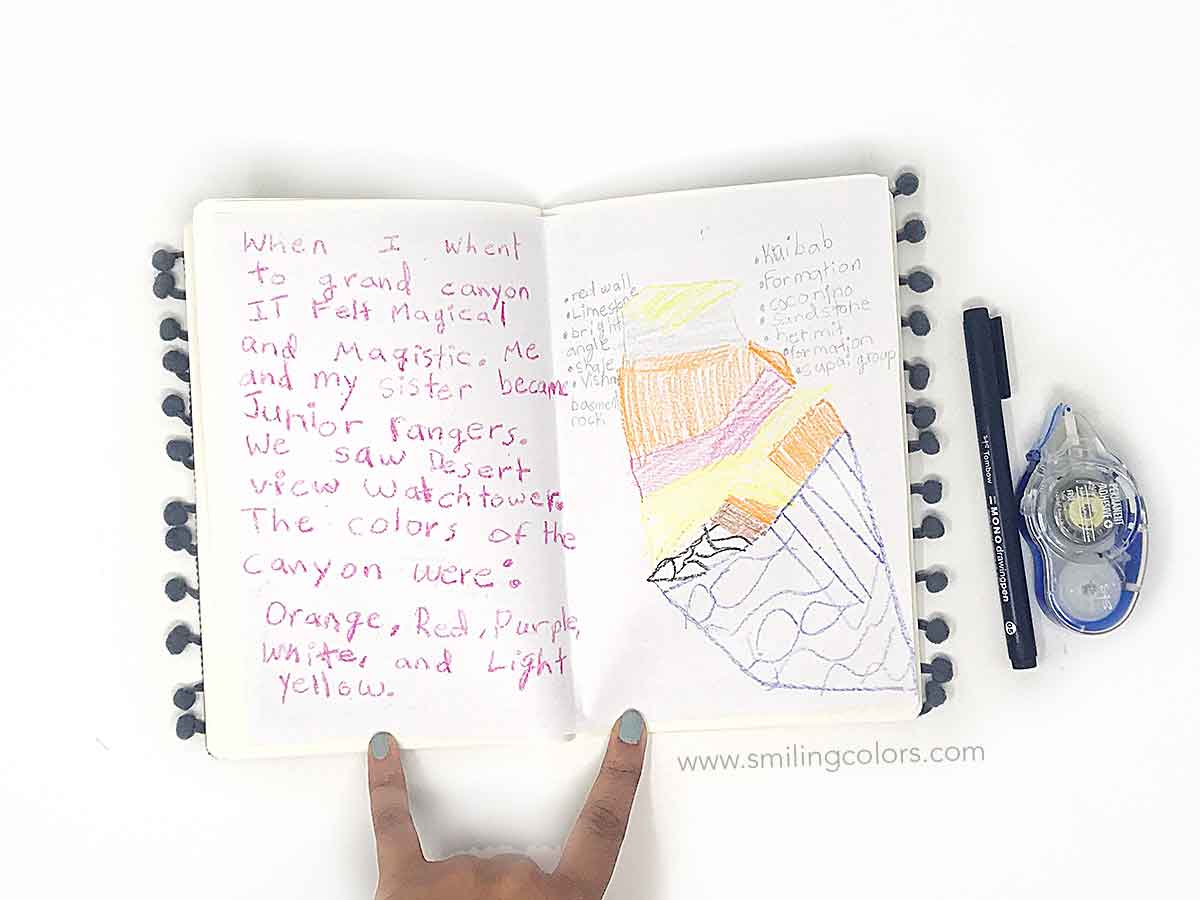 When I whent
to grand canyon
IT Felt Magical
and Magistic. Me
and my sister became
Junior rangers.
We saw Desert
view watchtower.
The colors of the
canyon were:
Orange, Red, Purple,
White, and Light
yellow.
• red wall
• Limestone
• bright
angle
• shale
• Vishnu
basment
rock
• Kaibab
• Formation
• coconino
• Sandstone
• hermit
• formation
• supai group
Tombow
MONO drawing pen
05
PERMANENT
ADHESIVE
www.smilingcolors.com